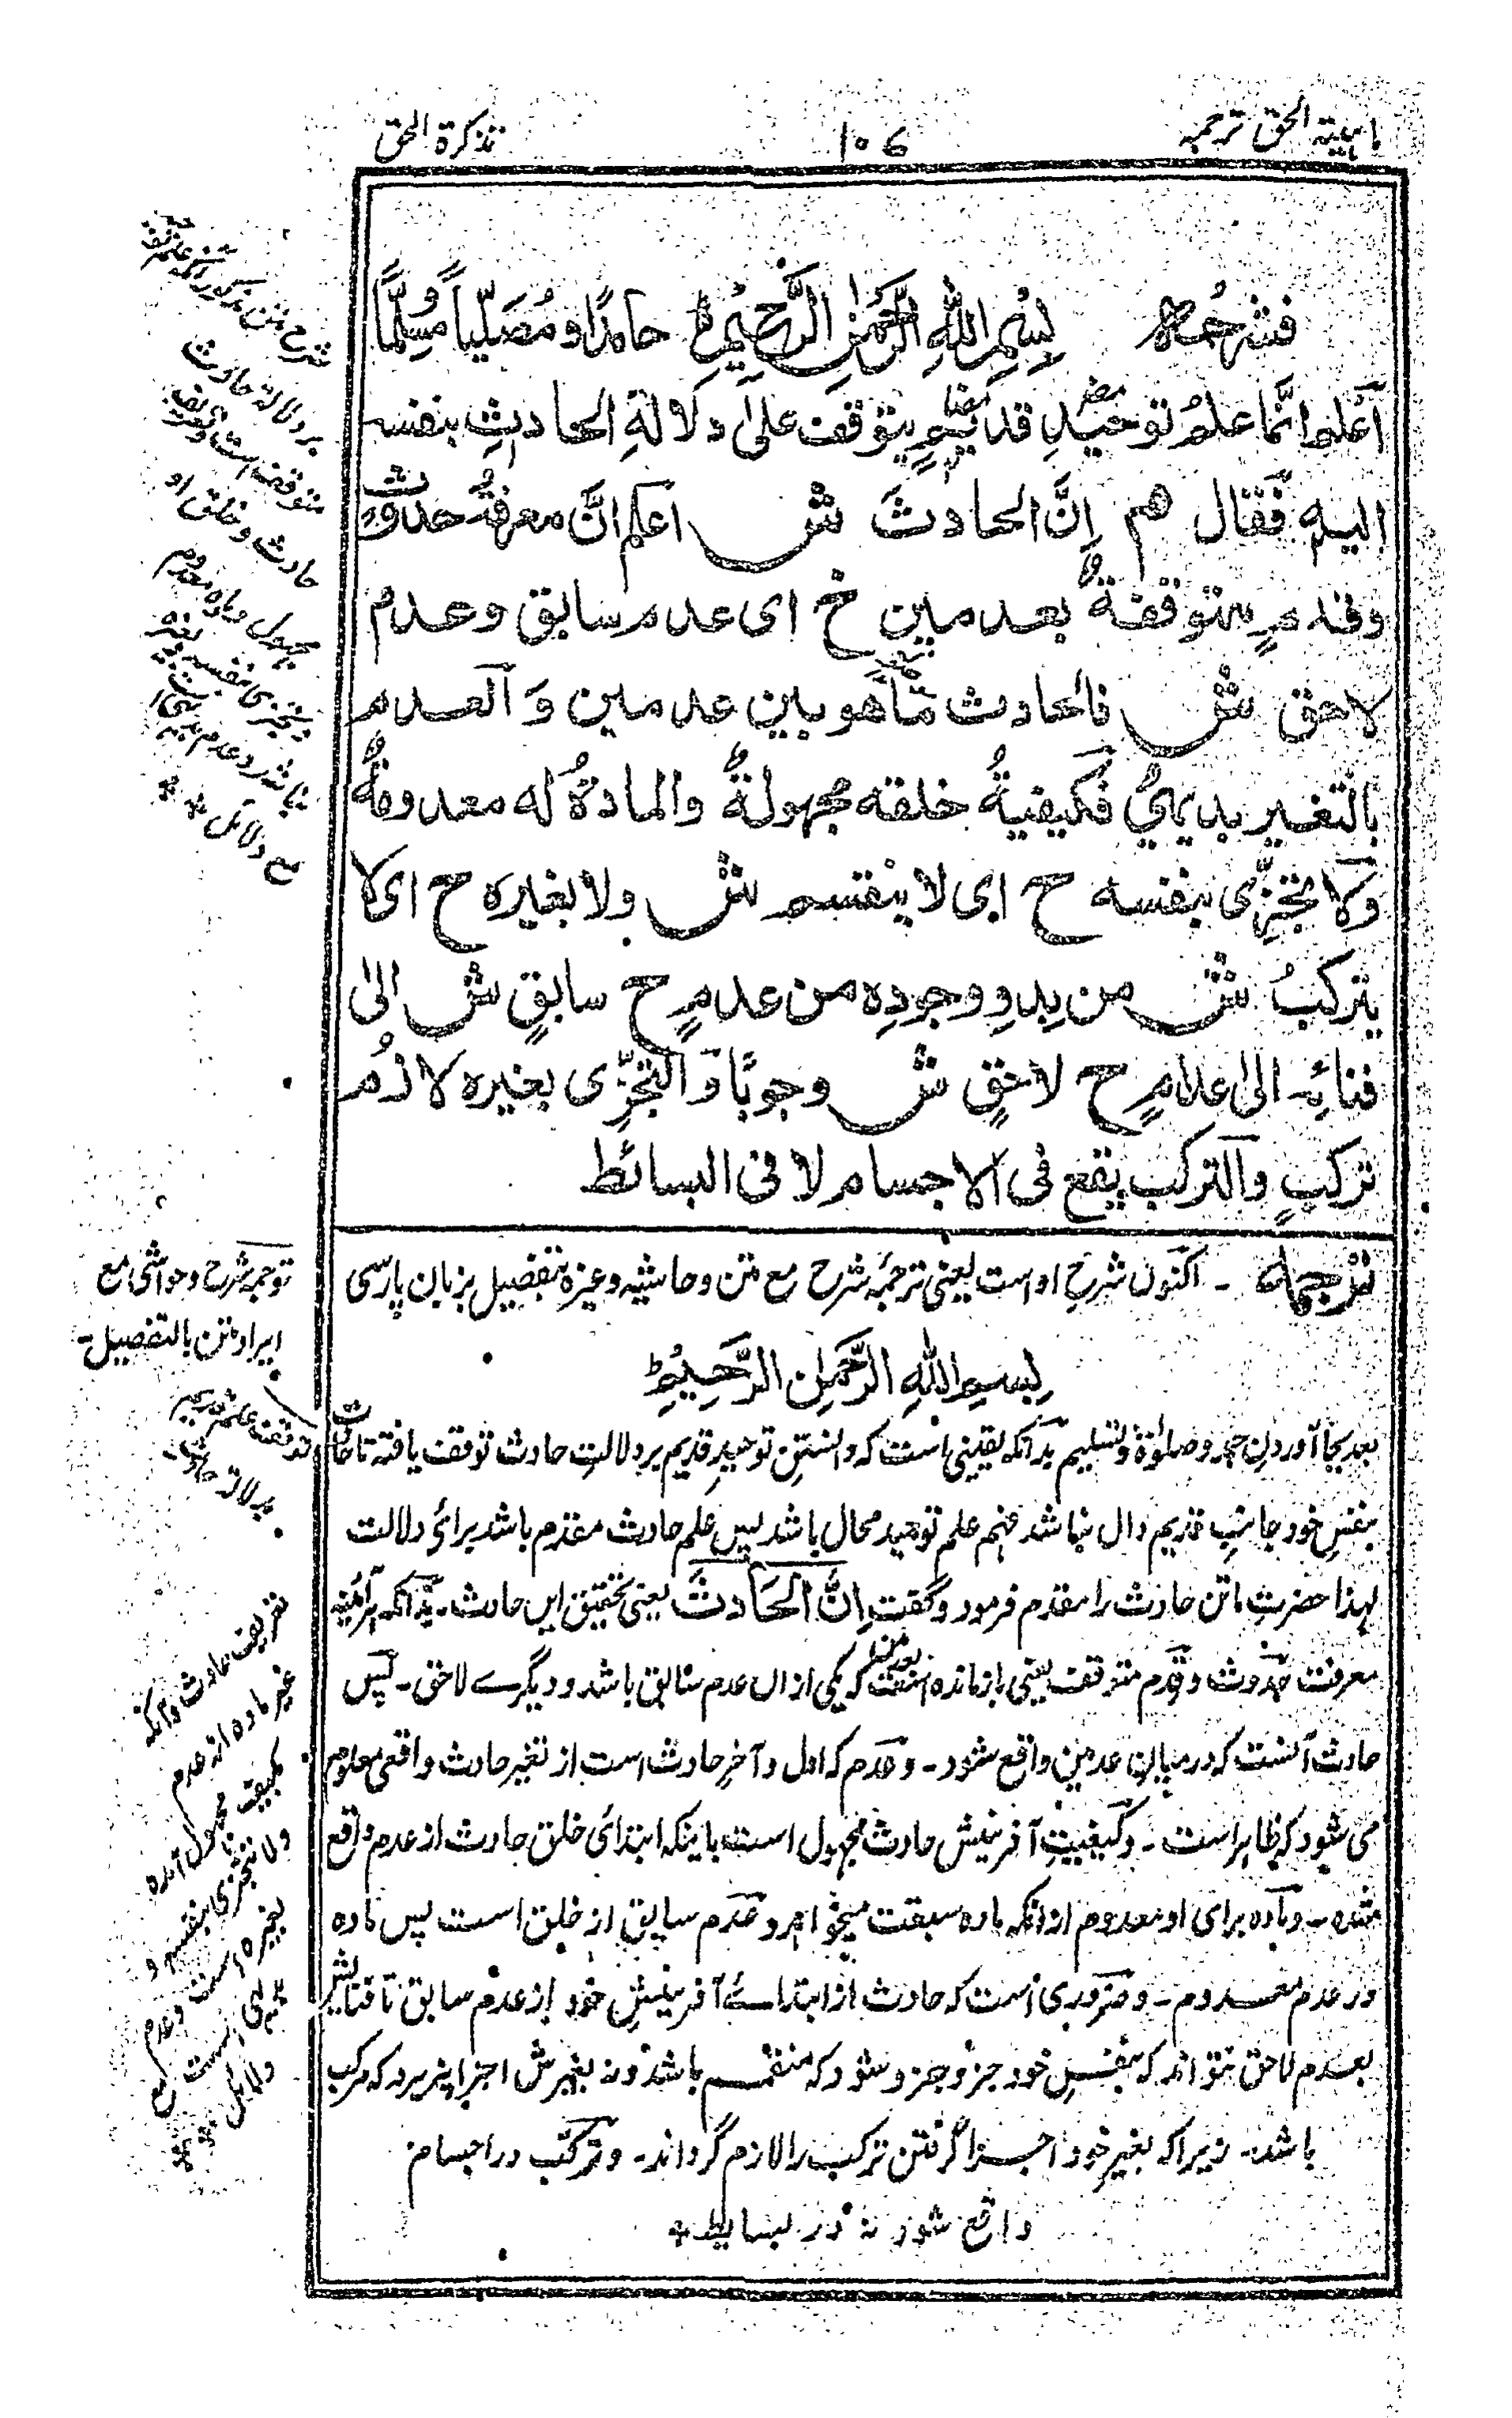 ماہیتہ الحق ترجمہ
۱۰۶
تذکرۃ الحق
فشرحہ بِسْمِ اللّٰهِ الرَّحْمٰنِ الرَّحِيْمِ حَامِدًا و مُصَلّیاً و مُسلِّمًا
اَعْلم انَّما علمُ توحیدِ قدیمٍ یتوقف علیٰ دلالةِ الحادثِ بنفسه
الیه فقال هم اِنَّ الحادثَ ش اعلم انَّ معرفةَ حدوثٍ
وقدمٍ متوقفةٌ بعدمین خ ای عدم سابق وعدم
لاحق ش فالحادث مَّا هو بین عدمین وَ العدم
بالتغیر بدیهیٌ فکیفیةُ خلقه مجهولةٌ والمادةُ له معدومةٌ
وَلا یتجزّی بنفسه ح ای لا ینقسم ش ولا بغیره ح ای لا
یترکبُ ش من بدوِ وجودِه من عدمٍ ح سابقٍ ش الیٰ
فنائه الیٰ عدمٍ ح لاحقٍ ش وجوبًا وَ التجزّی بغیره لازمُ
ترکبٍ والترکب یقع فی الاجسام لا فی البسائط
ترجمہ ۔ اکنون شرح اوست یعنی ترجمۂ شرح مع متن وحاشیہ وغیرہ بتفصیل بزبان پارسی
بِسمِ اللّٰهِ الرَّحْمٰنِ الرَّحِیْمِ
بعد بجا آوردن حمد وصلوٰۃ وتسلیم بدانکہ یقینی است کہ دانستنِ توحیدِ قدیم بر دلالتِ حادث توقف یافتہ تا حادث
بنفسِ خود جانبِ قدیم دال نباشد فہم علم توحید محال باشد پس علم حادث مقدم باشد برائ دلالت
لہذا حضرتِ ماتن حادث را مقدم فرمود وگفت اِنَّ الحَادثَ یعنی بتحقیق این حادث ۔ بدانکہ ہرآئینہ
معرفت حدوث وقدم متوقف یعنی باز ماندہ است بعدمین کہ یکی ازاں عدم سابق باشد ودیگرے لاحق ۔ پس
حادث آنست کہ درمیان عدمین واقع شود ۔ وعدم کہ اول وآخرِ حادث است از تغیر حادث واقعی معلوم
می شود کہ ظاہر است ۔ وکیفیتِ آفرینش حادث مجہول است باینکہ ابتدائ خلق حادث از عدم واقع
شدہ ۔ ومادہ برای او معدوم ازانکہ مادہ سبقت میخواہد وعدم سابق از خلق است پس مادہ
در عدم معدوم ۔ وضروری است کہ حادث از ابتدائے آفرینشِ خود از عدم سابق تا فنایش
بعدم لاحق نتواند کہ بنفسِ خود جزو جزو شود کہ منقسم باشد ونہ بغیرش اجزا پذیرد کہ مرکب
باشد ۔ زیراکہ بغیر خود اجزا گرفتن ترکب را لازم گرداند ۔ وترکب در اجسام
واقع شود نہ در بسایط
بر دلالۃ حادث
حادث وخلق او
مع دلائل
ترجمہ شرح وحواشی مع
ایراد متن بالتفصیل ۔
بر دلالۃ حادث
تعریف حادث وآنکہ
غیر مادہ از عدم
بکیفیت مجہول آمدہ
ولا یتجزی بنفسہ و
بغیرہ است وعدم